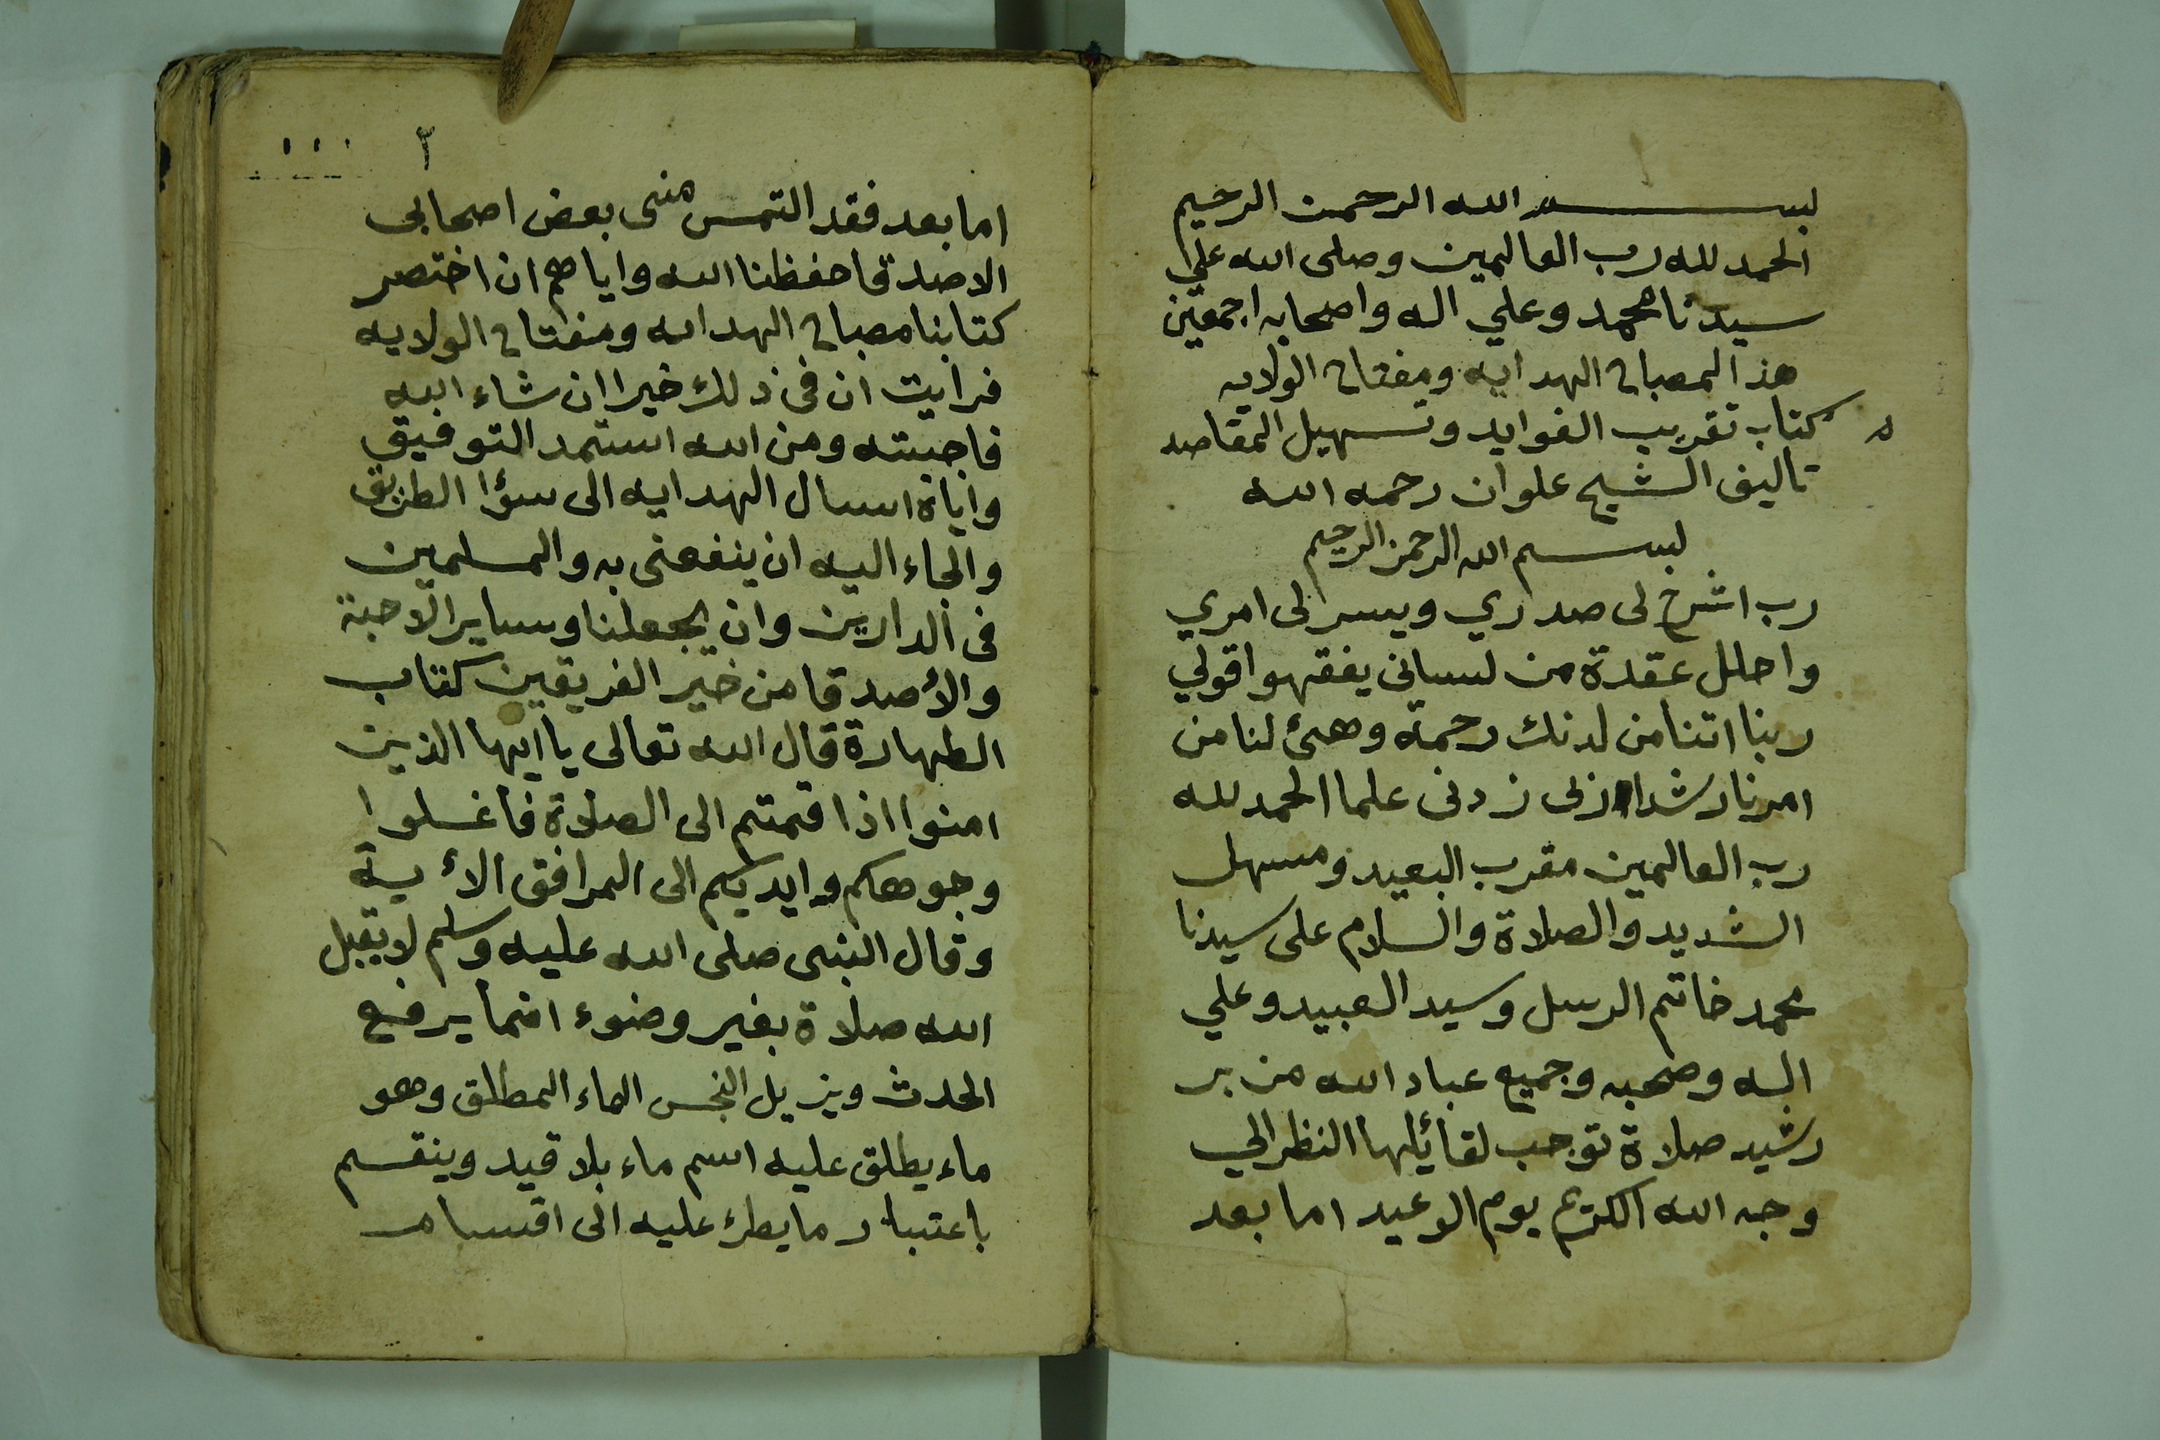 بسم الله الرحمن الرحيم
الحمد لله رب العالمين وصلى الله علي
سيدنا محمد وعلي اله واصحابه اجمعين
هذا المصباح الهدايه ومفتاح الولايه
كتاب تقريب الفوايد وتسهيل المقاصد
تاليف الشيخ علوان رحمه الله
بسم الله الرحمن الرحيم
رب اشرح لى صدري ويسر لى امري
واحلل عقدة من لسانى يفقهوا قولي
ربنا اتنا من لدنك رحمة وهيئ لنا من
امرنا رشدا زدنى علما الحمد لله
رب العالمين مقرب البعيد ومسهل
الشديد والصلاة والسلام على سيدنا
محمد خاتم الرسل وسيد العبيد وعلي
اله وصحبه وجميع عباد الله من بر
رشيد صلاة توجب لقائلها النظر الي
وجه الله الكريم يوم الوعيد اما بعد
٢
اما بعد فقد التمس منى بعض اصحابى
الاصدقا حفظنا الله واياهم ان اختصر
كتابنا مصباح الهدايه ومفتاح الولايه
فرايت ان فى ذلك خيرا ان شاء الله
فاجبته ومن الله استمد التوفيق
واياة اسال الهدايه الى سؤا الطريق
والجاء اليه ان ينفعنى به والمسلمين
فى الدارين وان يجعلنا وساير الاحبة
والأصدقا من خير الفريقين كتاب
الطهارة قال الله تعالى يا ايها الذين
امنوا اذا قمتم الى الصلاة فاغسلوا
وجوهكم وايديكم الى المرافق الأية
وقال النبى صلى الله عليه وسلم لا يقبل
الله صلاة بغير وضوء انما يرفع
الحدث ويزيل النجس الماء المطلق وهو
ماء يطلق عليه اسم ماء بلا قيد وينقسم
باعتبار ما يطرئ عليه الى اقسام